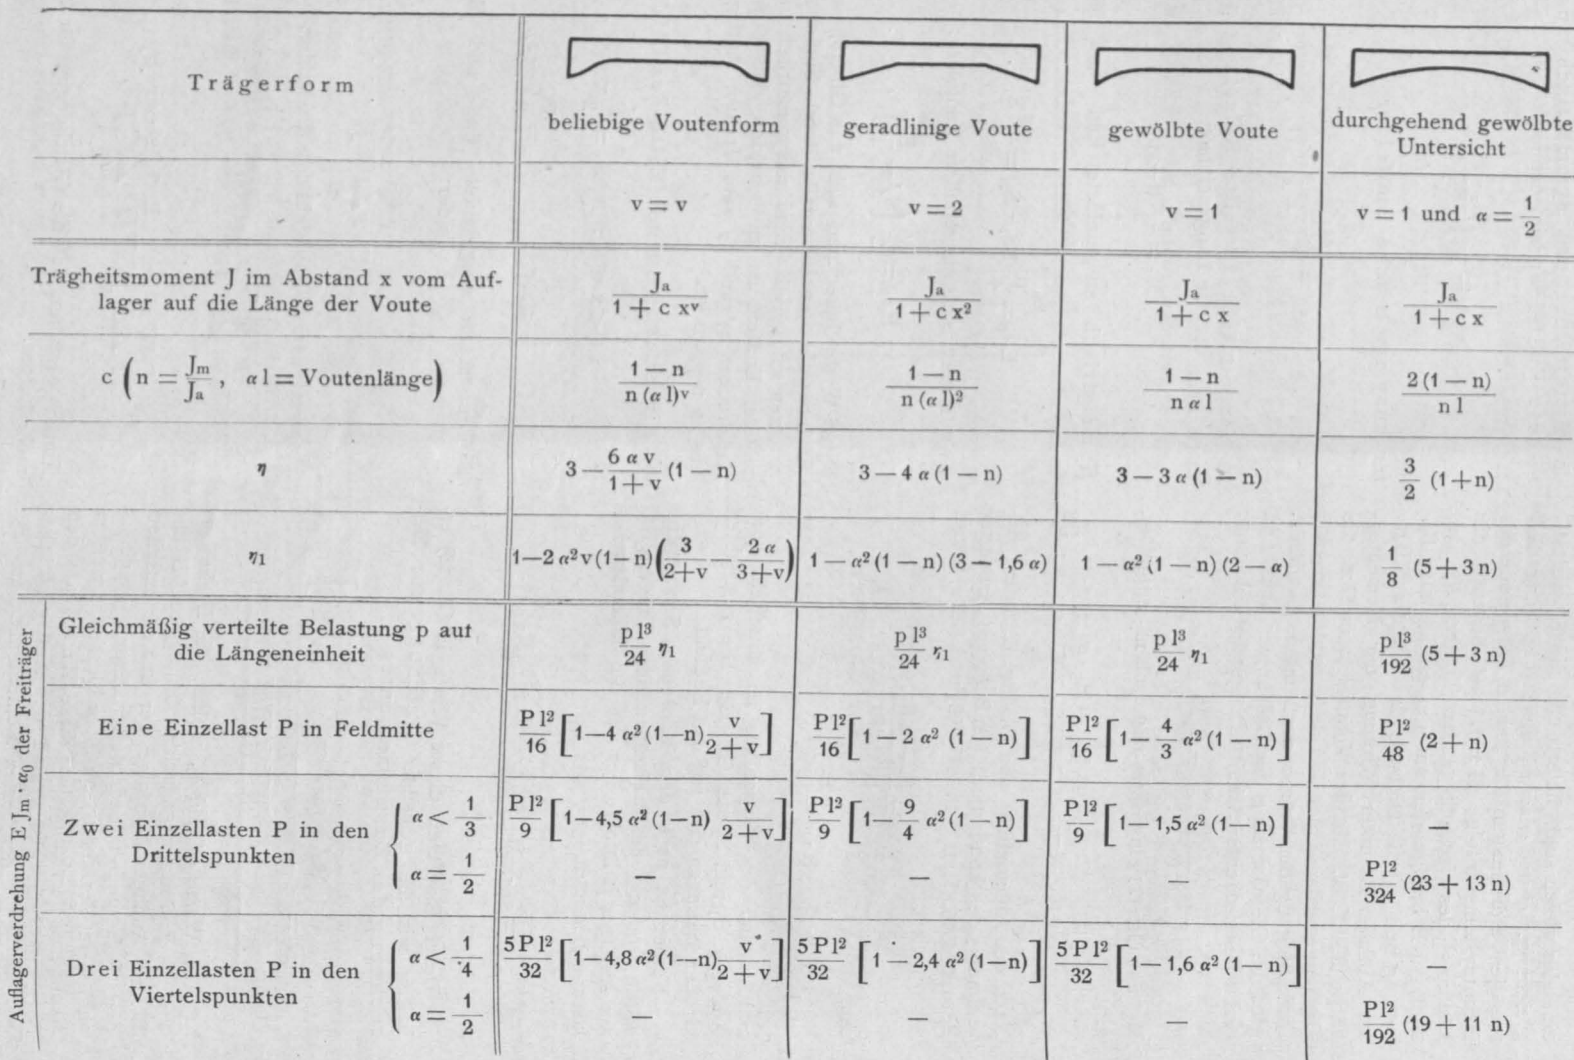 Trägerform
beliebige Voutenform
geradlinige Voute
gewölbte Voute
durchgehend gewölbte
Untersicht
v = v
v = 2
v = 1
v = 1 und α = 1/2
Trägheitsmoment J im Abstand x vom Auf-
lager auf die Länge der Voute
Ja / (1 + c xᵛ)
Ja / (1 + c x²)
Ja / (1 + c x)
Ja / (1 + c x)
c (n = Jm/Ja, α l = Voutenlänge)
(1 — n) / (n (α l)ᵛ)
(1 — n) / (n (α l)²)
(1 — n) / (n α l)
2 (1 — n) / (n l)
η
3 — (6 α v / (1 + v)) (1 — n)
3 — 4 α (1 — n)
3 — 3 α (1 — n)
3/2 (1 + n)
η₁
1—2 α² v (1—n) (3/(2+v) — 2 α/(3+v))
1 — α² (1 — n) (3 — 1,6 α)
1 — α² (1 — n) (2 — α)
1/8 (5 + 3 n)
Auflagerverdrehung E Jm · α₀ der Freiträger
Gleichmäßig verteilte Belastung p auf
die Längeneinheit
p l³/24 η₁
p l³/24 η₁
p l³/24 η₁
p l³/192 (5 + 3 n)
Eine Einzellast P in Feldmitte
P l²/16 [1—4 α² (1—n) v/(2 + v)]
P l²/16 [1 — 2 α² (1 — n)]
P l²/16 [1— 4/3 α² (1 — n)]
P l²/48 (2 + n)
Zwei Einzellasten P in den
Drittelspunkten
α < 1/3
P l²/9 [1—4,5 α² (1—n) v/(2 + v)]
P l²/9 [1— 9/4 α² (1— n)]
P l²/9 [1— 1,5 α² (1— n)]
—
α = 1/2
—
—
—
P l²/324 (23 + 13 n)
Drei Einzellasten P in den
Viertelspunkten
α < 1/4
5 P l²/32 [1—4,8 α² (1—n) v/(2 + v)]
5 P l²/32 [1 — 2,4 α² (1—n)]
5 P l²/32 [1— 1,6 α² (1— n)]
—
α = 1/2
—
—
—
P l²/192 (19 + 11 n)